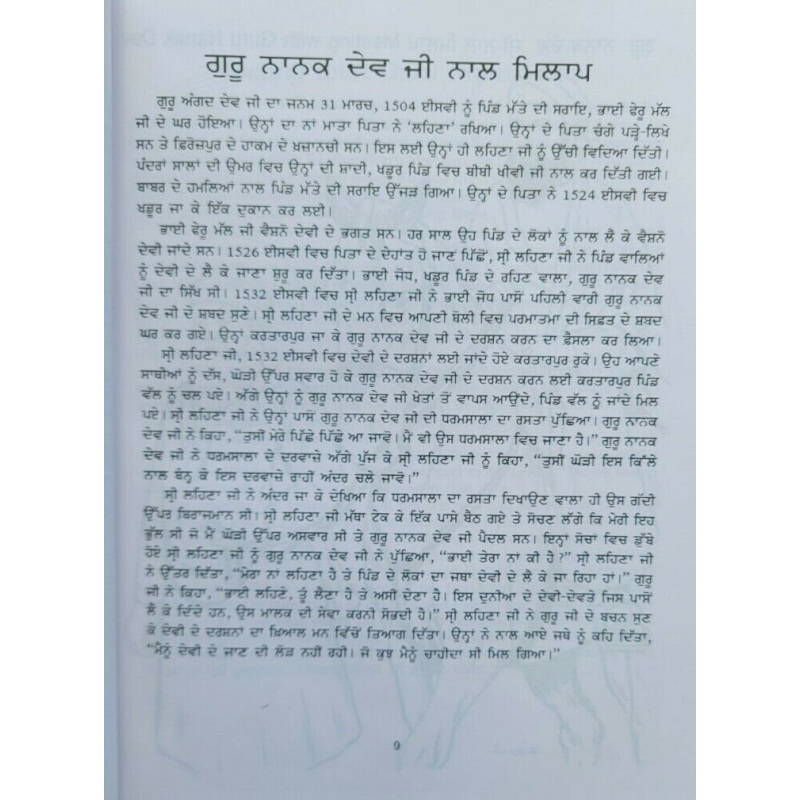 ਗੁਰੂ ਨਾਨਕ ਦੇਵ ਜੀ ਨਾਲ ਮਿਲਾਪ
ਗੁਰੂ ਅੰਗਦ ਦੇਵ ਜੀ ਦਾ ਜਨਮ 31 ਮਾਰਚ, 1504 ਈਸਵੀ ਨੂੰ ਪਿੰਡ ਮੱਤੇ ਦੀ ਸਰਾਇ, ਭਾਈ ਫੇਰੂ ਮੱਲ
ਜੀ ਦੇ ਘਰ ਹੋਇਆ। ਉਨ੍ਹਾਂ ਦਾ ਨਾਂ ਮਾਤਾ ਪਿਤਾ ਨੇ ‘ਲਹਿਣਾ’ ਰਖਿਆ। ਉਨ੍ਹਾਂ ਦੇ ਪਿਤਾ ਚੰਗੇ ਪੜ੍ਹੇ-ਲਿਖੇ
ਸਨ ਤੇ ਫਿਰੋਜ਼ਪੁਰ ਦੇ ਹਾਕਮ ਦੇ ਖ਼ਜ਼ਾਨਚੀ ਸਨ। ਇਸ ਲਈ ਉਨ੍ਹਾਂ ਹੀ ਲਹਿਣਾ ਜੀ ਨੂੰ ਉੱਚੀ ਵਿਦਿਆ ਦਿੱਤੀ।
ਪੰਦਰਾਂ ਸਾਲਾਂ ਦੀ ਉਮਰ ਵਿਚ ਉਨ੍ਹਾਂ ਦੀ ਸ਼ਾਦੀ, ਖਡੂਰ ਪਿੰਡ ਵਿਚ ਬੀਬੀ ਖੀਵੀ ਜੀ ਨਾਲ ਕਰ ਦਿੱਤੀ ਗਈ।
ਬਾਬਰ ਦੇ ਹਮਲਿਆਂ ਨਾਲ ਪਿੰਡ ਮੱਤੇ ਦੀ ਸਰਾਇ ਉੱਜੜ ਗਿਆ। ਉਨ੍ਹਾਂ ਦੇ ਪਿਤਾ ਨੇ 1524 ਈਸਵੀ ਵਿਚ
ਖਡੂਰ ਜਾ ਕੇ ਇੱਕ ਦੁਕਾਨ ਕਰ ਲਈ।
ਭਾਈ ਫੇਰੂ ਮੱਲ ਜੀ ਵੈਸ਼ਨੋ ਦੇਵੀ ਦੇ ਭਗਤ ਸਨ। ਹਰ ਸਾਲ ਉਹ ਪਿੰਡ ਦੇ ਲੋਕਾਂ ਨੂੰ ਨਾਲ ਲੈ ਕੇ ਵੈਸ਼ਨੋ
ਦੇਵੀ ਜਾਂਦੇ ਸਨ। 1526 ਈਸਵੀ ਵਿਚ ਪਿਤਾ ਦੇ ਦੇਹਾਂਤ ਹੋ ਜਾਣ ਪਿੱਛੋਂ, ਸ੍ਰੀ ਲਹਿਣਾ ਜੀ ਨੇ ਪਿੰਡ ਵਾਲਿਆਂ
ਨੂੰ ਦੇਵੀ ਦੇ ਲੈ ਕੇ ਜਾਣਾ ਸ਼ੁਰੂ ਕਰ ਦਿੱਤਾ। ਭਾਈ ਜੋਧ, ਖਡੂਰ ਪਿੰਡ ਦੇ ਰਹਿਣ ਵਾਲਾ, ਗੁਰੂ ਨਾਨਕ ਦੇਵ
ਜੀ ਦਾ ਸਿੱਖ ਸੀ। 1532 ਈਸਵੀ ਵਿਚ ਸ੍ਰੀ ਲਹਿਣਾ ਜੀ ਨੇ ਭਾਈ ਜੋਧ ਪਾਸੋਂ ਪਹਿਲੀ ਵਾਰੀ ਗੁਰੂ ਨਾਨਕ
ਦੇਵ ਜੀ ਦੇ ਸ਼ਬਦ ਸੁਣੇ। ਸ੍ਰੀ ਲਹਿਣਾ ਜੀ ਦੇ ਮਨ ਵਿਚ ਆਪਣੀ ਬੋਲੀ ਵਿਚ ਪਰਮਾਤਮਾ ਦੀ ਸਿਫ਼ਤ ਦੇ ਸ਼ਬਦ
ਘਰ ਕਰ ਗਏ। ਉਨ੍ਹਾਂ ਕਰਤਾਰਪੁਰ ਜਾ ਕੇ ਗੁਰੂ ਨਾਨਕ ਦੇਵ ਜੀ ਦੇ ਦਰਸ਼ਨ ਕਰਨ ਦਾ ਫ਼ੈਸਲਾ ਕਰ ਲਿਆ।
ਸ੍ਰੀ ਲਹਿਣਾ ਜੀ, 1532 ਈਸਵੀ ਵਿਚ ਦੇਵੀ ਦੇ ਦਰਸ਼ਨਾਂ ਲਈ ਜਾਂਦੇ ਹੋਏ ਕਰਤਾਰਪੁਰ ਰੁਕੇ। ਉਹ ਆਪਣੇ
ਸਾਥੀਆਂ ਨੂੰ ਦੱਸ, ਘੋੜੀ ਉੱਪਰ ਸਵਾਰ ਹੋ ਕੇ ਗੁਰੂ ਨਾਨਕ ਦੇਵ ਜੀ ਦੇ ਦਰਸ਼ਨ ਕਰਨ ਲਈ ਕਰਤਾਰਪੁਰ ਪਿੰਡ
ਵੱਲ ਨੂੰ ਚਲ ਪਏ। ਅੱਗੋਂ ਉਨ੍ਹਾਂ ਨੂੰ ਗੁਰੂ ਨਾਨਕ ਦੇਵ ਜੀ ਖੇਤਾਂ ਤੋਂ ਵਾਪਸ ਆਉਂਦੇ, ਪਿੰਡ ਵੱਲ ਨੂੰ ਜਾਂਦੇ ਮਿਲ
ਪਏ। ਸ੍ਰੀ ਲਹਿਣਾ ਜੀ ਨੇ ਉਨ੍ਹਾਂ ਪਾਸੋਂ ਗੁਰੂ ਨਾਨਕ ਦੇਵ ਜੀ ਦੀ ਧਰਮਸਾਲਾ ਦਾ ਰਸਤਾ ਪੁੱਛਿਆ। ਗੁਰੂ ਨਾਨਕ
ਦੇਵ ਜੀ ਨੇ ਕਿਹਾ, “ਤੁਸੀਂ ਮੇਰੇ ਪਿੱਛੇ ਪਿੱਛੇ ਆ ਜਾਵੋ। ਮੈਂ ਵੀ ਉਸ ਧਰਮਸਾਲਾ ਵਿਚ ਜਾਣਾ ਹੈ।” ਗੁਰੂ ਨਾਨਕ
ਦੇਵ ਜੀ ਨੇ ਧਰਮਸਾਲਾ ਦੇ ਦਰਵਾਜ਼ੇ ਅੱਗੇ ਪੁੱਜ ਕੇ ਸ੍ਰੀ ਲਹਿਣਾ ਜੀ ਨੂੰ ਕਿਹਾ, “ਤੁਸੀਂ ਘੋੜੀ ਇਸ ਕਿੱਲੇ
ਨਾਲ ਬੰਨ੍ਹ ਕੇ ਇਸ ਦਰਵਾਜ਼ੇ ਰਾਹੀਂ ਅੰਦਰ ਚਲੇ ਜਾਵੋ।”
ਸ੍ਰੀ ਲਹਿਣਾ ਜੀ ਨੇ ਅੰਦਰ ਜਾ ਕੇ ਦੇਖਿਆ ਕਿ ਧਰਮਸਾਲਾ ਦਾ ਰਸਤਾ ਦਿਖਾਉਣ ਵਾਲਾ ਹੀ ਉਸ ਗੱਦੀ
ਉੱਪਰ ਬਿਰਾਜਮਾਨ ਸੀ। ਸ੍ਰੀ ਲਹਿਣਾ ਜੀ ਮੱਥਾ ਟੇਕ ਕੇ ਇੱਕ ਪਾਸੇ ਬੈਠ ਗਏ ਤੇ ਸੋਚਣ ਲੱਗੇ ਕਿ ਮੇਰੀ ਇਹ
ਭੁੱਲ ਸੀ ਜੋ ਮੈਂ ਘੋੜੀ ਉੱਪਰ ਅਸਵਾਰ ਸੀ ਤੇ ਗੁਰੂ ਨਾਨਕ ਦੇਵ ਜੀ ਪੈਦਲ ਸਨ। ਇਨ੍ਹਾਂ ਸੋਚਾਂ ਵਿਚ ਡੁੱਬੇ
ਹੋਏ ਸ੍ਰੀ ਲਹਿਣਾ ਜੀ ਨੂੰ ਗੁਰੂ ਨਾਨਕ ਦੇਵ ਜੀ ਨੇ ਪੁੱਛਿਆ, “ਭਾਈ ਤੇਰਾ ਨਾਂ ਕੀ ਹੈ?” ਸ੍ਰੀ ਲਹਿਣਾ ਜੀ
ਨੇ ਉੱਤਰ ਦਿੱਤਾ, “ਮੇਰਾ ਨਾਂ ਲਹਿਣਾ ਹੈ ਤੇ ਪਿੰਡ ਦੇ ਲੋਕਾਂ ਦਾ ਜਥਾ ਦੇਵੀ ਦੇ ਲੈ ਕੇ ਜਾ ਰਿਹਾ ਹਾਂ।” ਗੁਰੂ
ਜੀ ਨੇ ਕਿਹਾ, “ਭਾਈ ਲਹਿਣੇ, ਤੂੰ ਲੈਣਾ ਹੈ ਤੇ ਅਸੀਂ ਦੇਣਾ ਹੈ। ਇਸ ਦੁਨੀਆ ਦੇ ਦੇਵੀ-ਦੇਵਤੇ ਜਿਸ ਪਾਸੋਂ
ਲੈ ਕੇ ਦਿੰਦੇ ਹਨ, ਉਸ ਮਾਲਕ ਦੀ ਸੇਵਾ ਕਰਨੀ ਸੋਭਦੀ ਹੈ।” ਸ੍ਰੀ ਲਹਿਣਾ ਜੀ ਨੇ ਗੁਰੂ ਜੀ ਦੇ ਬਚਨ ਸੁਣ
ਕੇ ਦੇਵੀ ਦੇ ਦਰਸ਼ਨਾਂ ਦਾ ਖ਼ਿਆਲ ਮਨ ਵਿੱਚੋਂ ਤਿਆਗ ਦਿੱਤਾ। ਉਨ੍ਹਾਂ ਨੇ ਨਾਲ ਆਏ ਜਥੇ ਨੂੰ ਕਹਿ ਦਿੱਤਾ,
“ਮੈਨੂੰ ਦੇਵੀ ਦੇ ਜਾਣ ਦੀ ਲੋੜ ਨਹੀਂ ਰਹੀ। ਜੋ ਕੁਝ ਮੈਨੂੰ ਚਾਹੀਦਾ ਸੀ ਮਿਲ ਗਿਆ।”
9